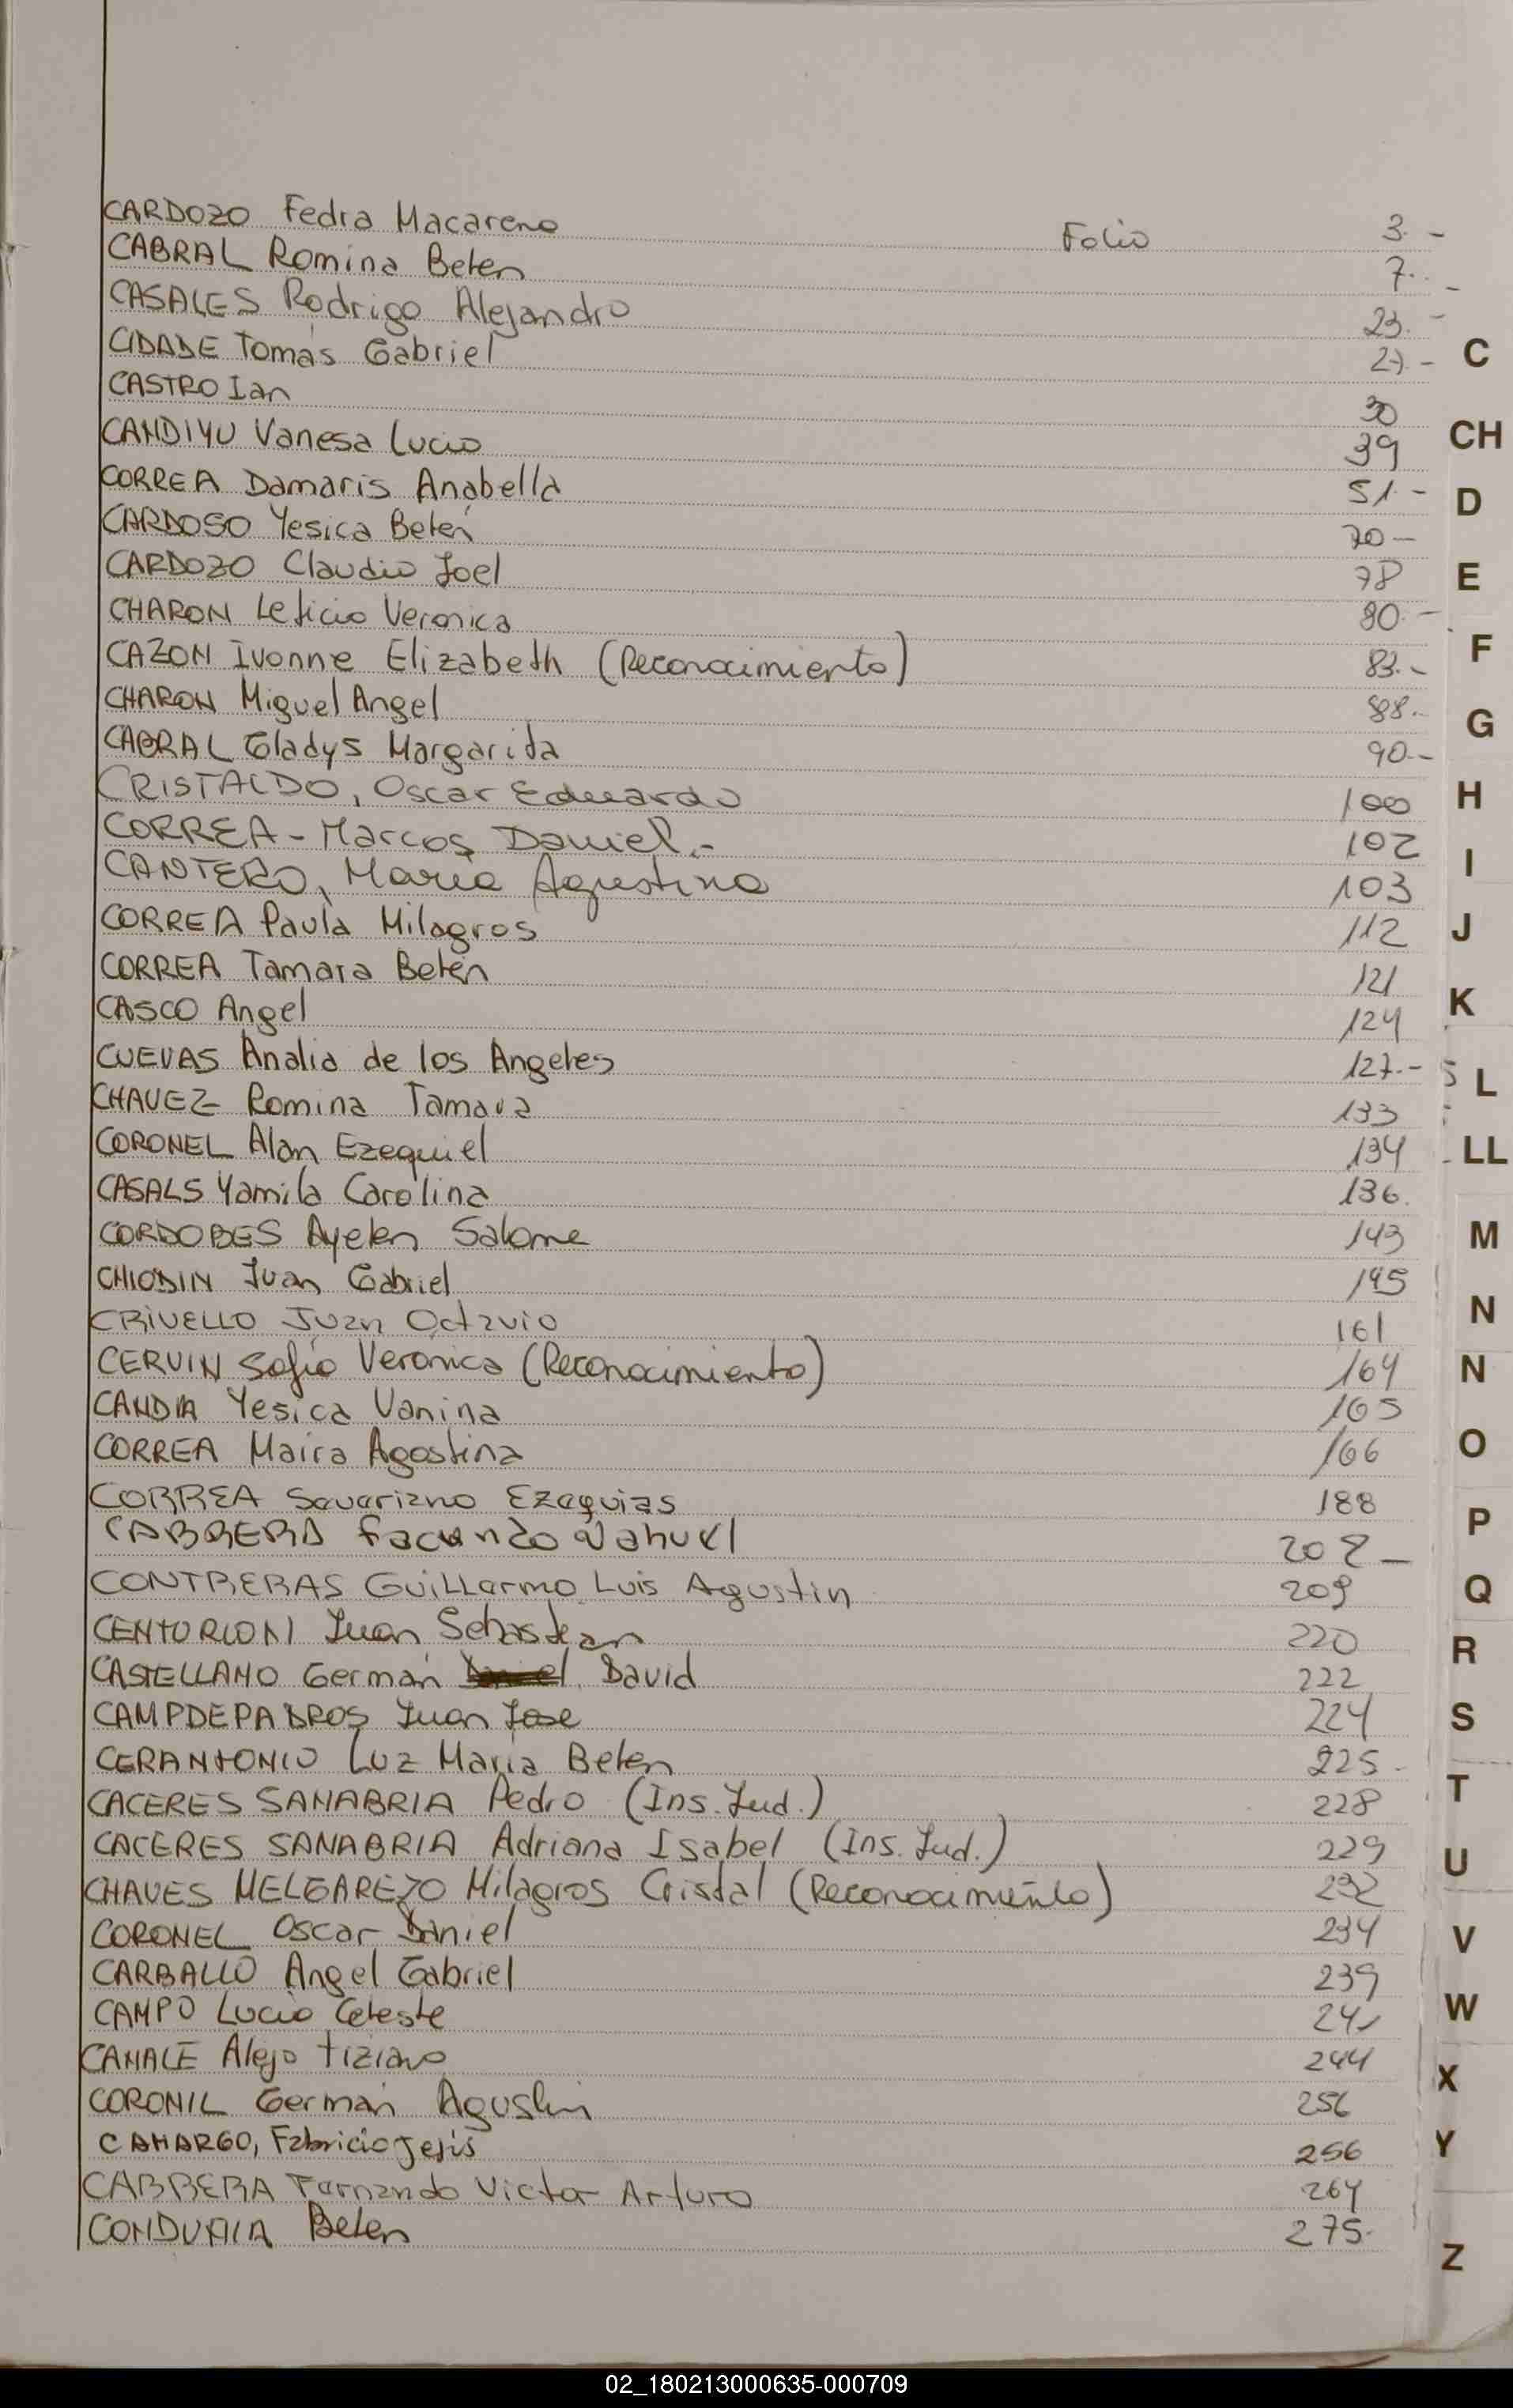 CARDOZO Fedra Macarena Folio 3.-
CABRAL Romina Belen 7.-
CASALES Rodrigo Alejandro 23.-
CIDADE Tomás Gabriel 27.-
CASTRO Ian 30
CANDIYU Vanesa Lucia 39
CORREA Damaris Anabella 51.-
CARDOSO Yesica Belén 70-
CARDOZO Claudio Joel 78
CHARON Leticia Veronica 80.-
CAZON Ivonne Elizabeth (Reconocimiento) 83.-
CHARON Miguel Angel 88.-
CABRAL Gladys Margarita 90.-
CRISTALDO, Oscar Eduardo 100
CORREA - Marcos Daniel.- 102
CANTERO, María Agustina 103
CORREA Paula Milagros 112
CORREA Tamara Belén 121
CASCO Angel 124
CUEVAS Analia de los Angeles 127.-
CHAVEZ Romina Tamara 133
CORONEL Alan Ezequiel 134
CASALS Yamila Carolina 136.
CORDOBES Ayelen Salome 143
CHIODIN Juan Gabriel
CRIVELLO Juan Octavio 161
CERVIN Sofia Veronica (Reconocimiento) 164
CANDIA Yesica Vanina 165
CORREA Maira Agostina 166
CORREA Savariano Ezequias 188
CABRERA Facundo Nahuel 208-
CONTRERAS Guillermo Luis Agustin 209
CENTURIONI Juan Sebastian 220
CASTELLANO Germán David 222
CAMPDEPADROS Juan Jose 224
CERANTONIO Luz María Belen 225.
CACERES SANABRIA Pedro (Ins. Jud.) 228
CACERES SANABRIA Adriana Isabel (Ins. Jud.) 229
CHAVES MELGAREJO Milagros Cristal (Reconocimiento) 232
CORONEL Oscar Daniel 234
CARBALLO Angel Gabriel 239
CAMPO Lucia Celeste 241
CANALE Alejo Tiziano 244
CORONIL Germán Agustin 256
CAMARGO, Fabricio Jesús 256
CABRERA Fernando Victor Arturo 264
Belen 275.
C
CH
D
E
F
G
H
I
J
K
L
LL
M
N
N
O
P
Q
R
S
T
U
V
W
X
Y
Z
02_180213000635-000709